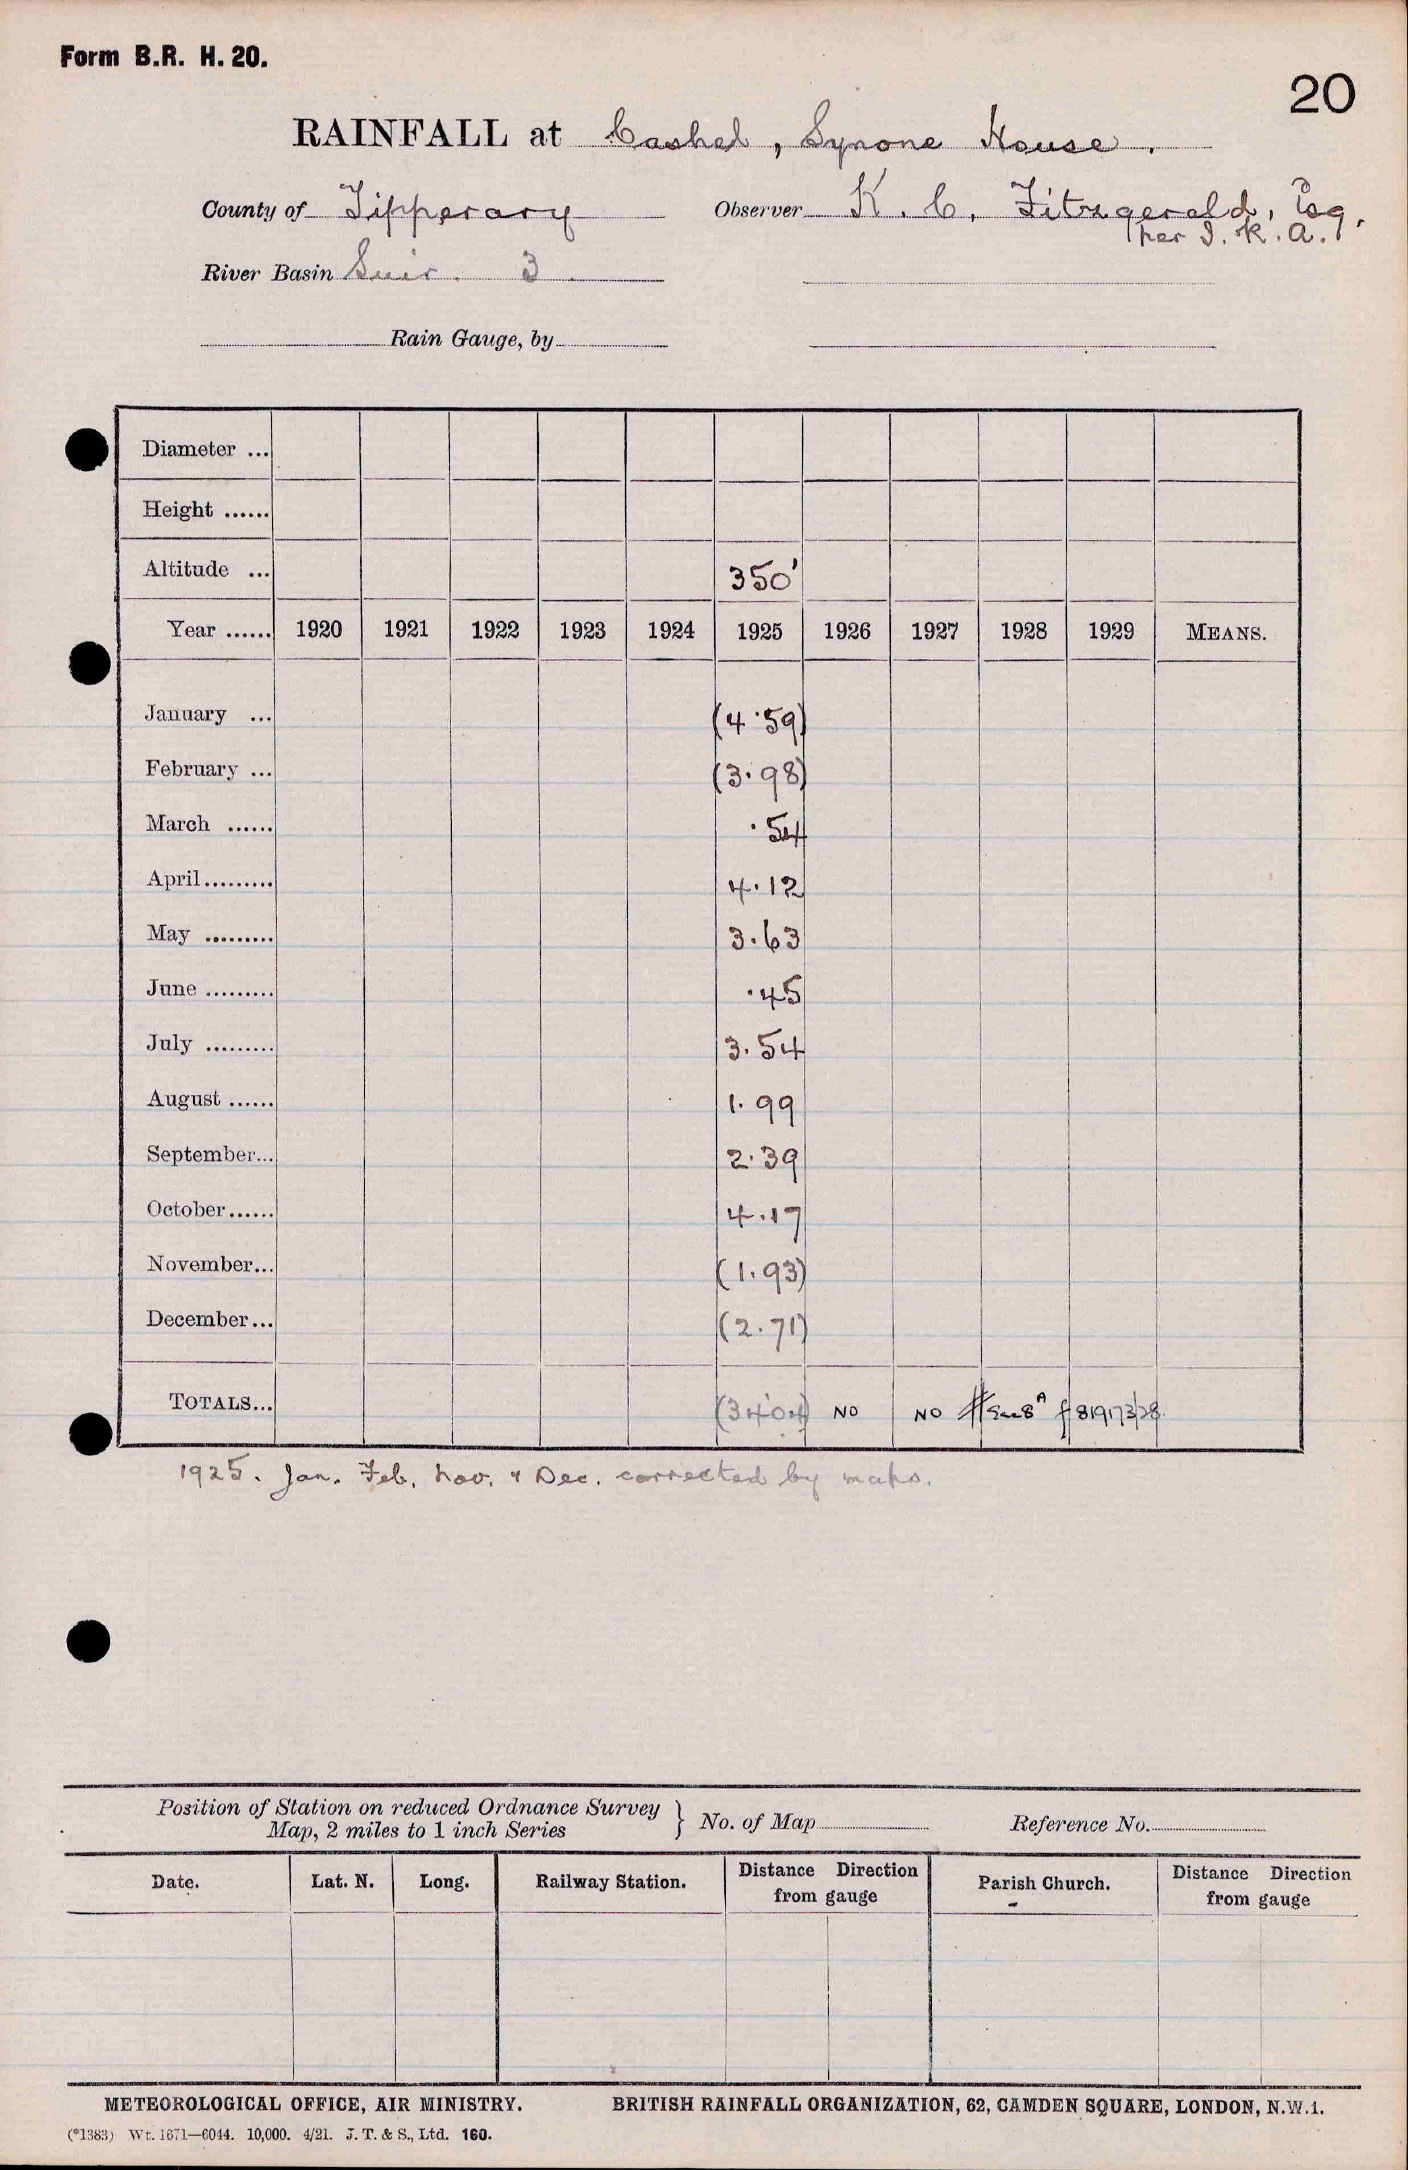 Form B.R. H. 20.
20
RAINFALL at Cashel, Synone House.
County of Tipperary Observer K. C. Fitzgerald, Esq.
per I. R. A.
River Basin Suir. 3
Rain Gauge, by
Diameter ...
Height ......
Altitude ... 350'
Year ...... 1920 1921 1922 1923 1924 1925 1926 1927 1928 1929 MEANS.
January ... (4.59)
February ... (3.98)
March ...... .54
April......... 4.12
May ......... 3.63
June ......... .45
July ......... 3.54
August ...... 1.99
September... 2.39
October...... 4.17
November... (1.93)
December... (2.71)
TOTALS... (34.04) NO NO 819173/28.
1925. Jan. Feb. Nov. & Dec. corrected by maps.
Position of Station on reduced Ordnance Survey
Map, 2 miles to 1 inch Series } No. of Map Reference No.
Date. Lat. N. Long. Railway Station. Distance Direction
from gauge Parish Church. Distance Direction
from gauge
METEOROLOGICAL OFFICE, AIR MINISTRY. BRITISH RAINFALL ORGANIZATION, 62, CAMDEN SQUARE, LONDON, N.W.1.
(*1383) Wt. 1671—6044. 10,000. 4/21. J. T. & S., Ltd. 160.